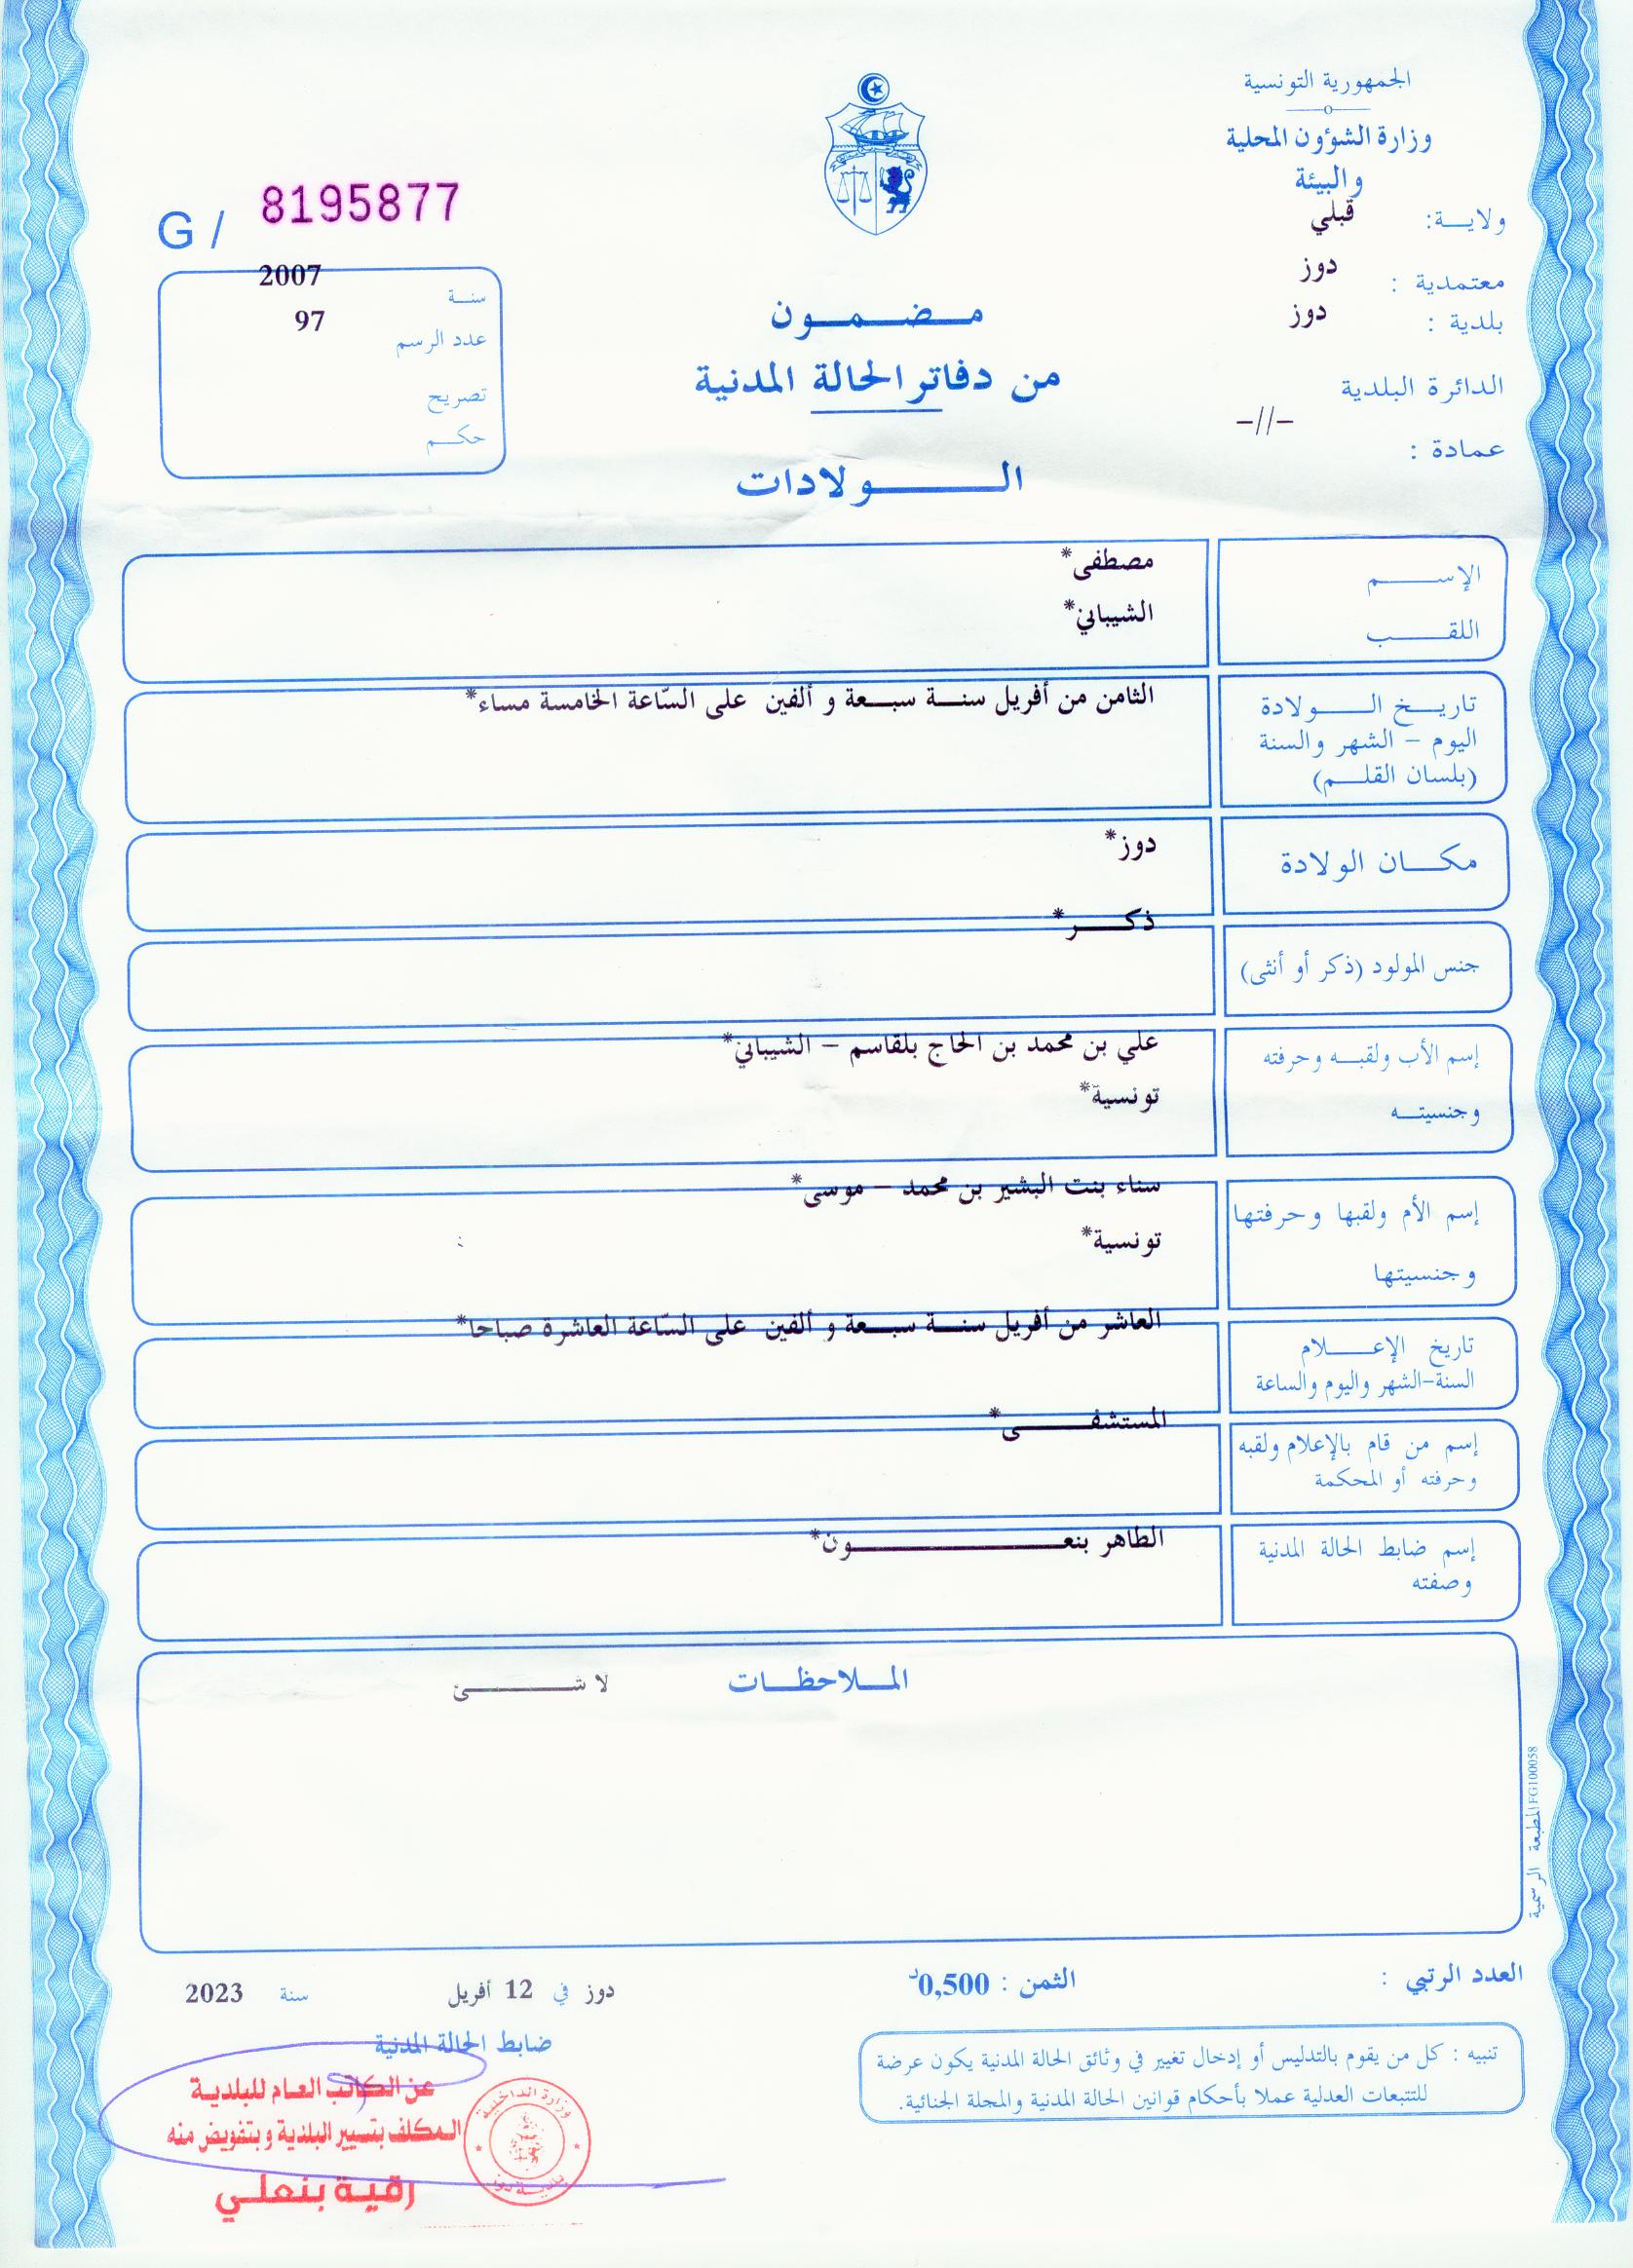 الجمهورية التونسية
وزارة الشؤون المحلية
والبيئة
ولايـــة: قبلي
معتمدية : دوز
بلدية : دوز
الدائرة البلدية
-//-
عمادة :
G / 8195877
سنــة 2007
عدد الرسم 97
تصريح
حكـــم
مــضــمــون
من دفاتر الحالة المدنية
الـــــولادات
الإســـــم مصطفى*
اللقـــــب الشيباني*
تاريــخ الـــــولادة
اليوم - الشهر والسنة
(بلسان القلـــم)
الثامن من أفريل سنـــة سبـــعة و ألفين على السّاعة الخامسة مساء*
مكـــان الولادة دوز*
جنس المولود (ذكر أو أنثى) ذكـــــر*
إسم الأب ولقبـــه وحرفته علي بن محمد بن الحاج بلقاسم - الشيباني*
وجنسيتـــه تونسية*
إسم الأم ولقبها وحرفتها سناء بنت البشير بن محمد - موسى*
وجنسيتها تونسية*
تاريخ الإعـــــلام
السنة-الشهر واليوم والساعة
العاشر من أفريل سنـــة سبـــعة و ألفين على السّاعة العاشرة صباحا*
إسم من قام بالإعلام ولقبه
وحرفته أو المحكمة
المستشفـــــــى*
إسم ضابط الحالة المدنية
وصفته
الطاهر بنعـــــــــــون*
المــلاحظــات لا شـــــــئ
المطبعة الرسمية FG100058
العدد الرتبي :
الثمن : 0,500د
دوز في 12 أفريل سنة 2023
ضابط الحالة المدنية
تنبيه : كل من يقوم بالتدليس أو إدخال تغيير في وثائق الحالة المدنية يكون عرضة
للتتبعات العدلية عملا بأحكام قوانين الحالة المدنية والمجلة الجنائية.
عن الكاتب العام للبلدية
المكلف بتسيير البلدية وبتفويض منه
رقية بنعلي
وزارة الداخلية
بلدية دوز